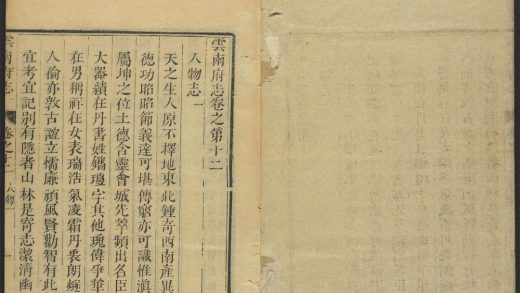 雲南府志卷之第十二
人物志一
天之生人原不擇地東北鍾奇西南産異
德功昭昭節義達可堪傳窮亦可識惟滇
屬坤之位土德含靈會城先萃頻出名臣
大器績在丹書姓鐫瓊字其他瑰偉爭華
在男稱祥在女表瑞浩氣凌霜丹衷朗
人倫亦敦古誼立懦廉頑風賢勸智有此
宜考宜記別有隱者山林是寄志潔清幽
雲南府志
卷之十二
人物一